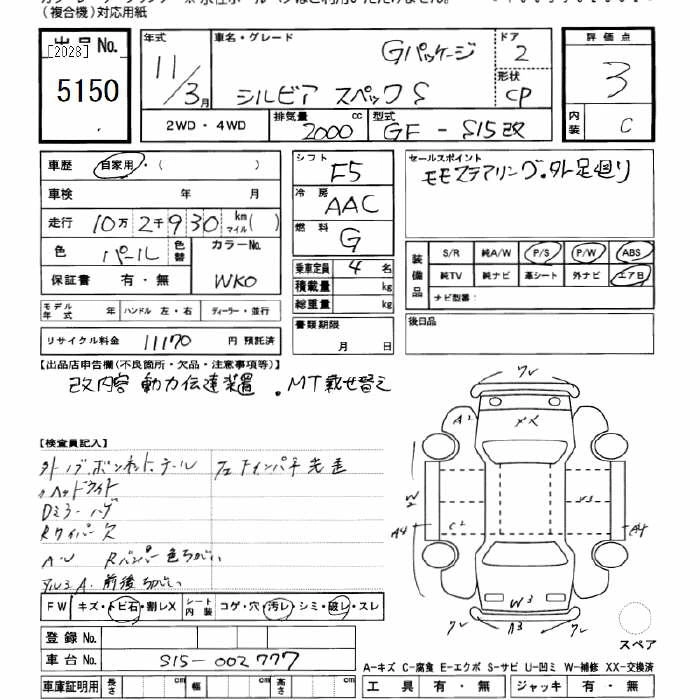 (複合機)対応用紙
出品No.
[2028]
5150
年式
11/3月
車名・グレード
Gパッケージ
シルビア スペックS
ドア
2
形状
CP
評価点
3
内装
C
2WD・4WD
排気量
2000cc
型式
GF-S15改
車歴
自家用・( )
車検 年 月
走行 10万2千930 km マイル( )
色 パール 色替
カラーNo.
WK0
保証書 有・無
モデル年式 年
ハンドル 左・右
ディーラー・並行
リサイクル料金 11170 円 預託済
シフト
F5
冷房
AAC
燃料
G
乗車定員 4 名
積載量 kg
総重量 kg
書類期限
月 日
セールスポイント
モモステアリング.外足廻り
装備品
S/R 純A/W P/S P/W ABS
純TV 純ナビ 革シート 外ナビ エアB
ナビ型番:
後日品
【出品店申告欄(不良箇所・欠品・注意事項等)】
改内容 動力伝達装置 .MT載せ替え
【検査員記入】
外ノブ.ボンネット.テール
ヘッドライト
Dミラーハゲ
Rワイパー欠
Rバンパー色ちがい
アルミA.前後ちがい
FW キズ・トビ石・割レX
シート内装 コゲ・穴・汚レ・シミ・破レ・スレ
登録No.
車台No. S15-002777
車庫証明用 長さ cm 幅 cm 高さ cm
ワレ
A2
メX
W2
A4
C2
A4
W3
ワレ
A3
ワレ
スペア
A-キズ C-腐食 E-エクボ S-サビ U-凹ミ W-補修 XX-交換済
工具 有・無 ジャッキ 有・無